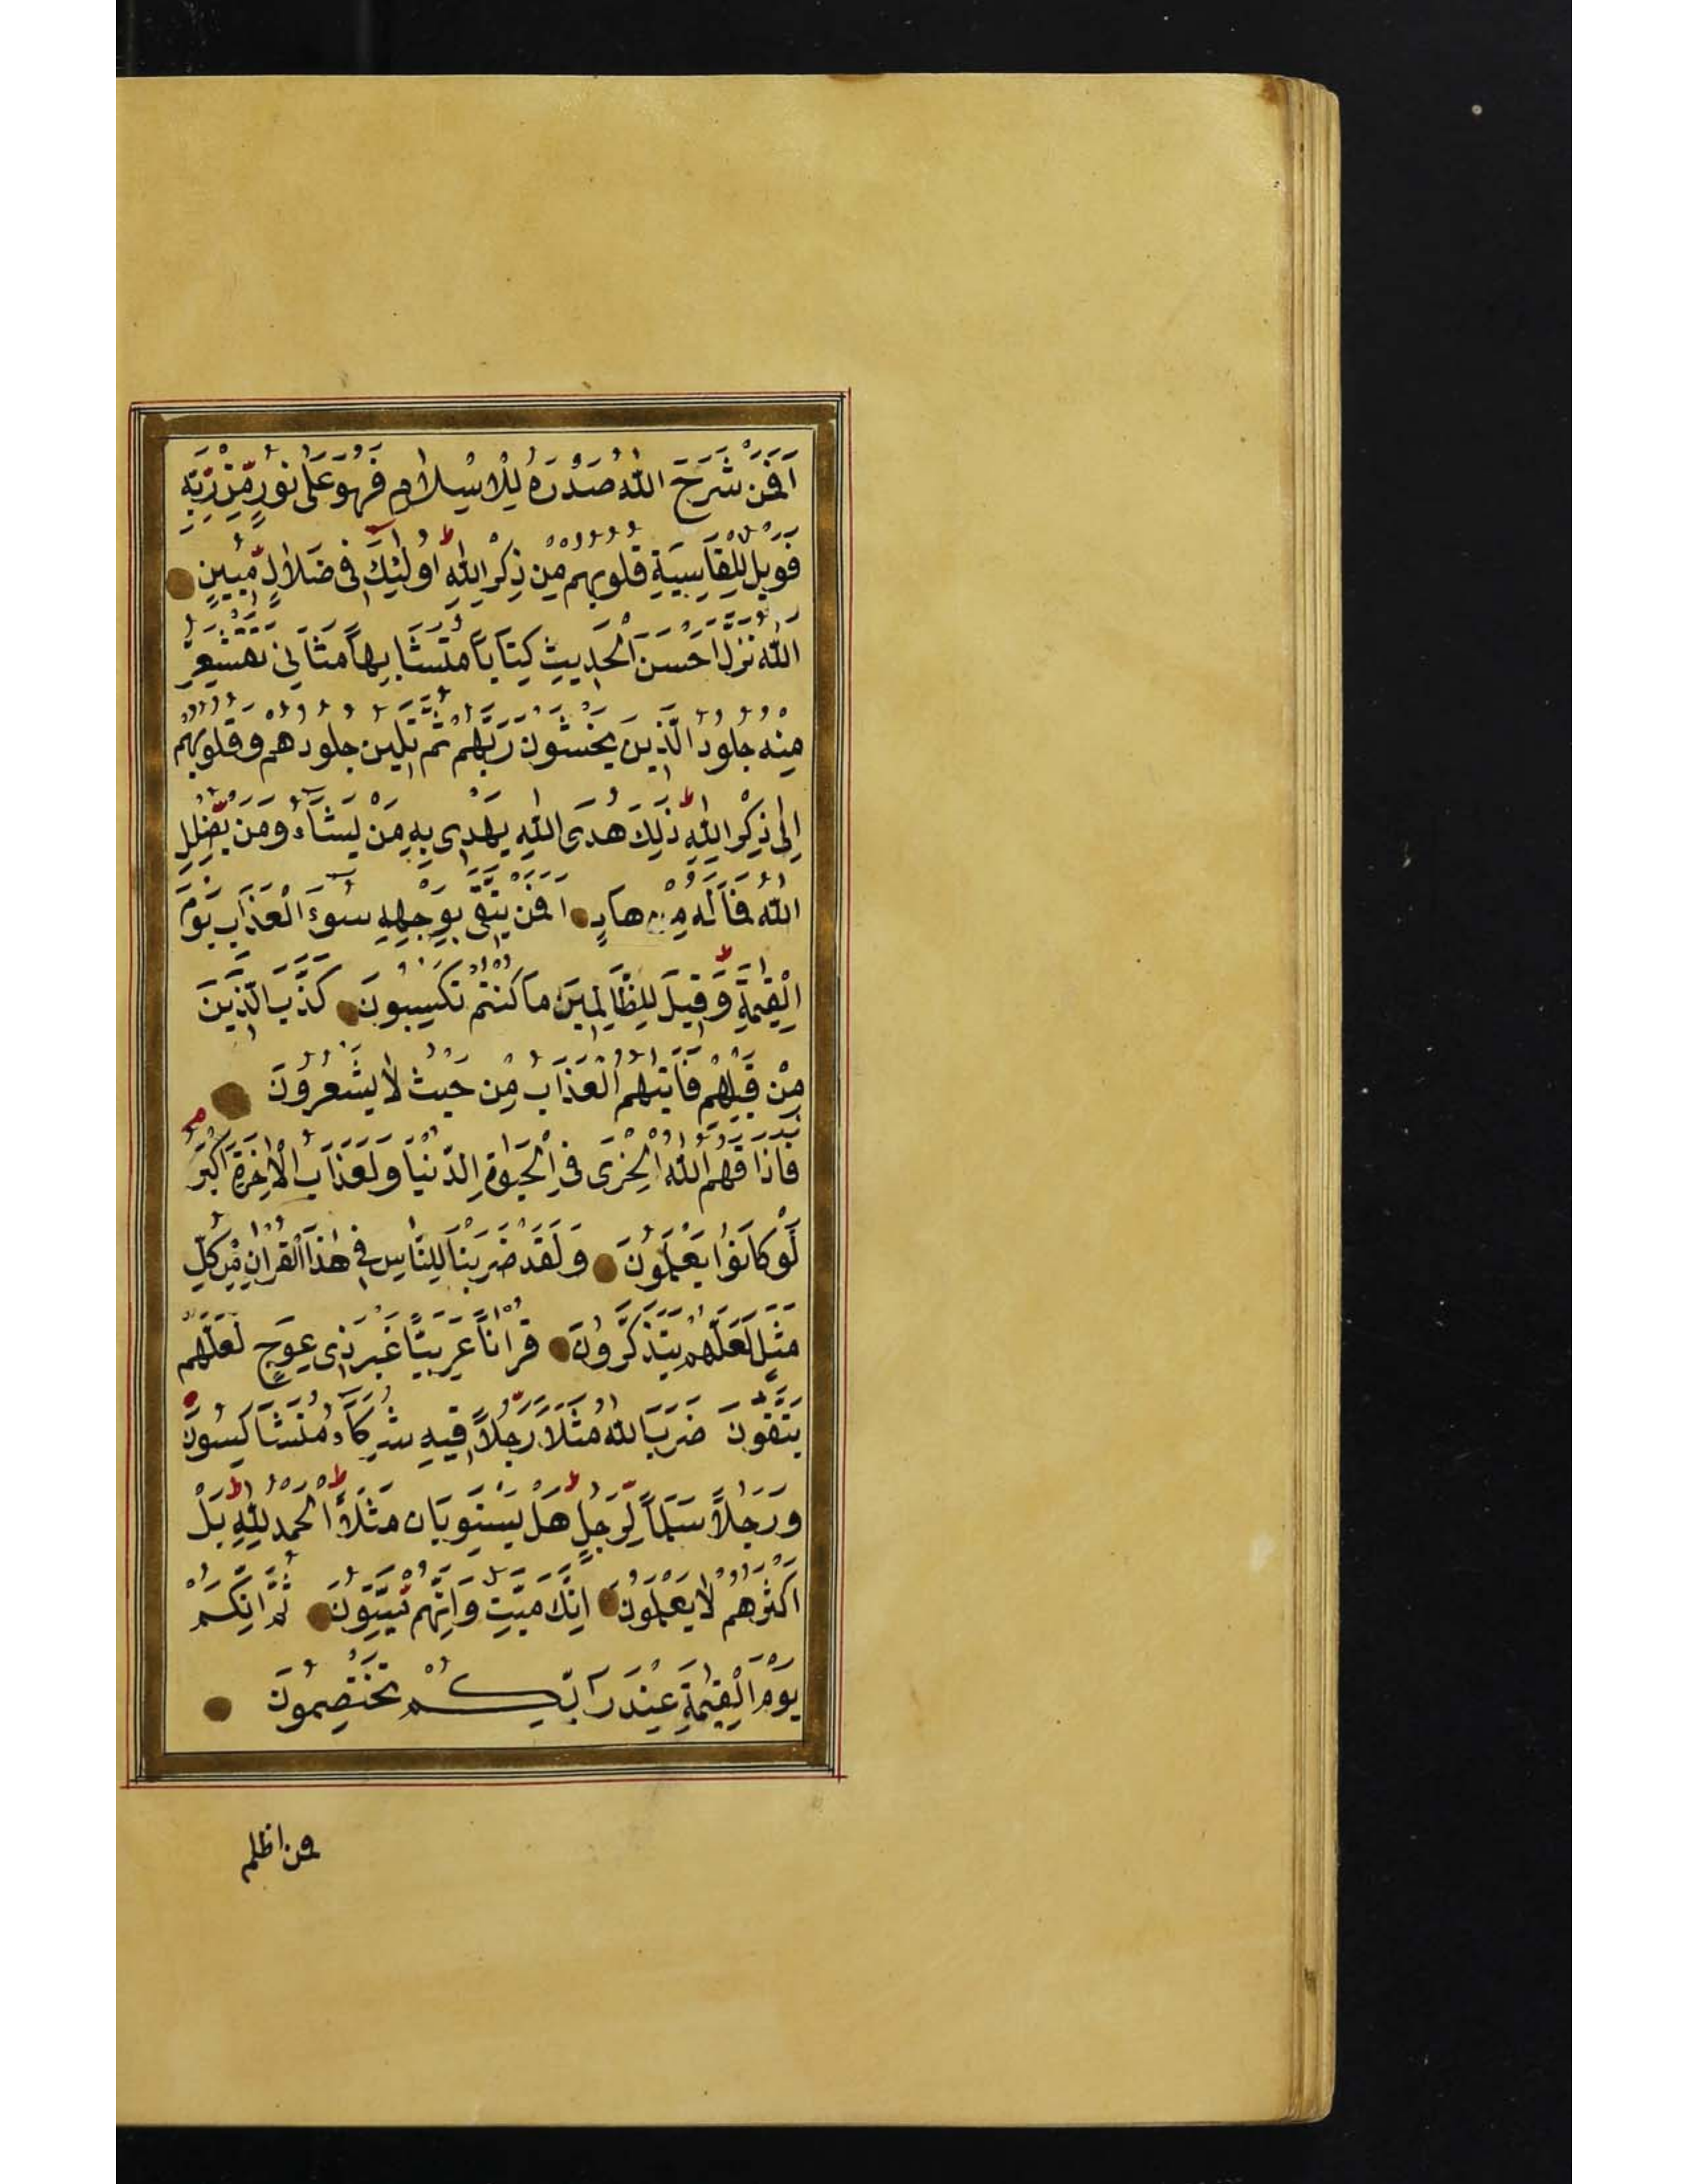 اَفَمَنْ شَرَحَ اللّٰهُ صَدْرَهُ لِلْاِسْلَامِ فَهُوَ عَلٰى نُورٍ مِّنْ رَبِّهٖ
فَوَيْلٌ لِلْقَاسِيَةِ قُلُوبُهُمْ مِنْ ذِكْرِ اللّٰهِ ط اُولٰئِكَ فِى ضَلَالٍ مُّبِينٍ
اَللّٰهُ نَزَّلَ اَحْسَنَ الْحَدِيثِ كِتَابًا مُتَشَابِهًا مَثَانِىَ تَقْشَعِرُّ
مِنْهُ جُلُودُ الَّذِينَ يَخْشَوْنَ رَبَّهُمْ ثُمَّ تَلِينُ جُلُودُهُمْ وَقُلُوبُهُمْ
اِلٰى ذِكْرِ اللّٰهِ ط ذٰلِكَ هُدَى اللّٰهِ يَهْدِى بِهٖ مَنْ يَشَآءُ وَمَنْ يُّضْلِلِ
اللّٰهُ فَمَا لَهُ مِنْ هَادٍ اَفَمَنْ يَتَّقِى بِوَجْهِهٖ سُوٓءَ الْعَذَابِ يَوْمَ
الْقِيٰمَةِ ط وَقِيلَ لِلظَّالِمِينَ مَا كُنْتُمْ تَكْسِبُونَ كَذَّبَ الَّذِينَ
مِنْ قَبْلِهِمْ فَاَتٰيهُمُ الْعَذَابُ مِنْ حَيْثُ لَا يَشْعُرُونَ
فَاَذَاقَهُمُ اللّٰهُ الْخِزْىَ فِى الْحَيٰوةِ الدُّنْيَا وَلَعَذَابُ الْاٰخِرَةِ اَكْبَرُ م
لَوْ كَانُوا يَعْلَمُونَ وَلَقَدْ ضَرَبْنَا لِلنَّاسِ فِى هٰذَا الْقُرْاٰنِ مِنْ كُلِّ
مَثَلٍ لَعَلَّهُمْ يَتَذَكَّرُونَ قُرْاٰنًا عَرَبِيًّا غَيْرَ ذِى عِوَجٍ لَعَلَّهُمْ
يَتَّقُونَ ضَرَبَ اللّٰهُ مَثَلًا رَّجُلًا فِيهِ شُرَكَآءُ مُتَشَاكِسُونَ
وَرَجُلًا سَلَمًا لِّرَجُلٍ ط هَلْ يَسْتَوِيَانِ مَثَلًا ط اَلْحَمْدُ لِلّٰهِ ط بَلْ
اَكْثَرُهُمْ لَا يَعْلَمُونَ اِنَّكَ مَيِّتٌ وَاِنَّهُمْ مَّيِّتُونَ ثُمَّ اِنَّكُمْ
يَوْمَ الْقِيٰمَةِ عِنْدَ رَبِّكُمْ تَخْتَصِمُونَ
فمن اظلم